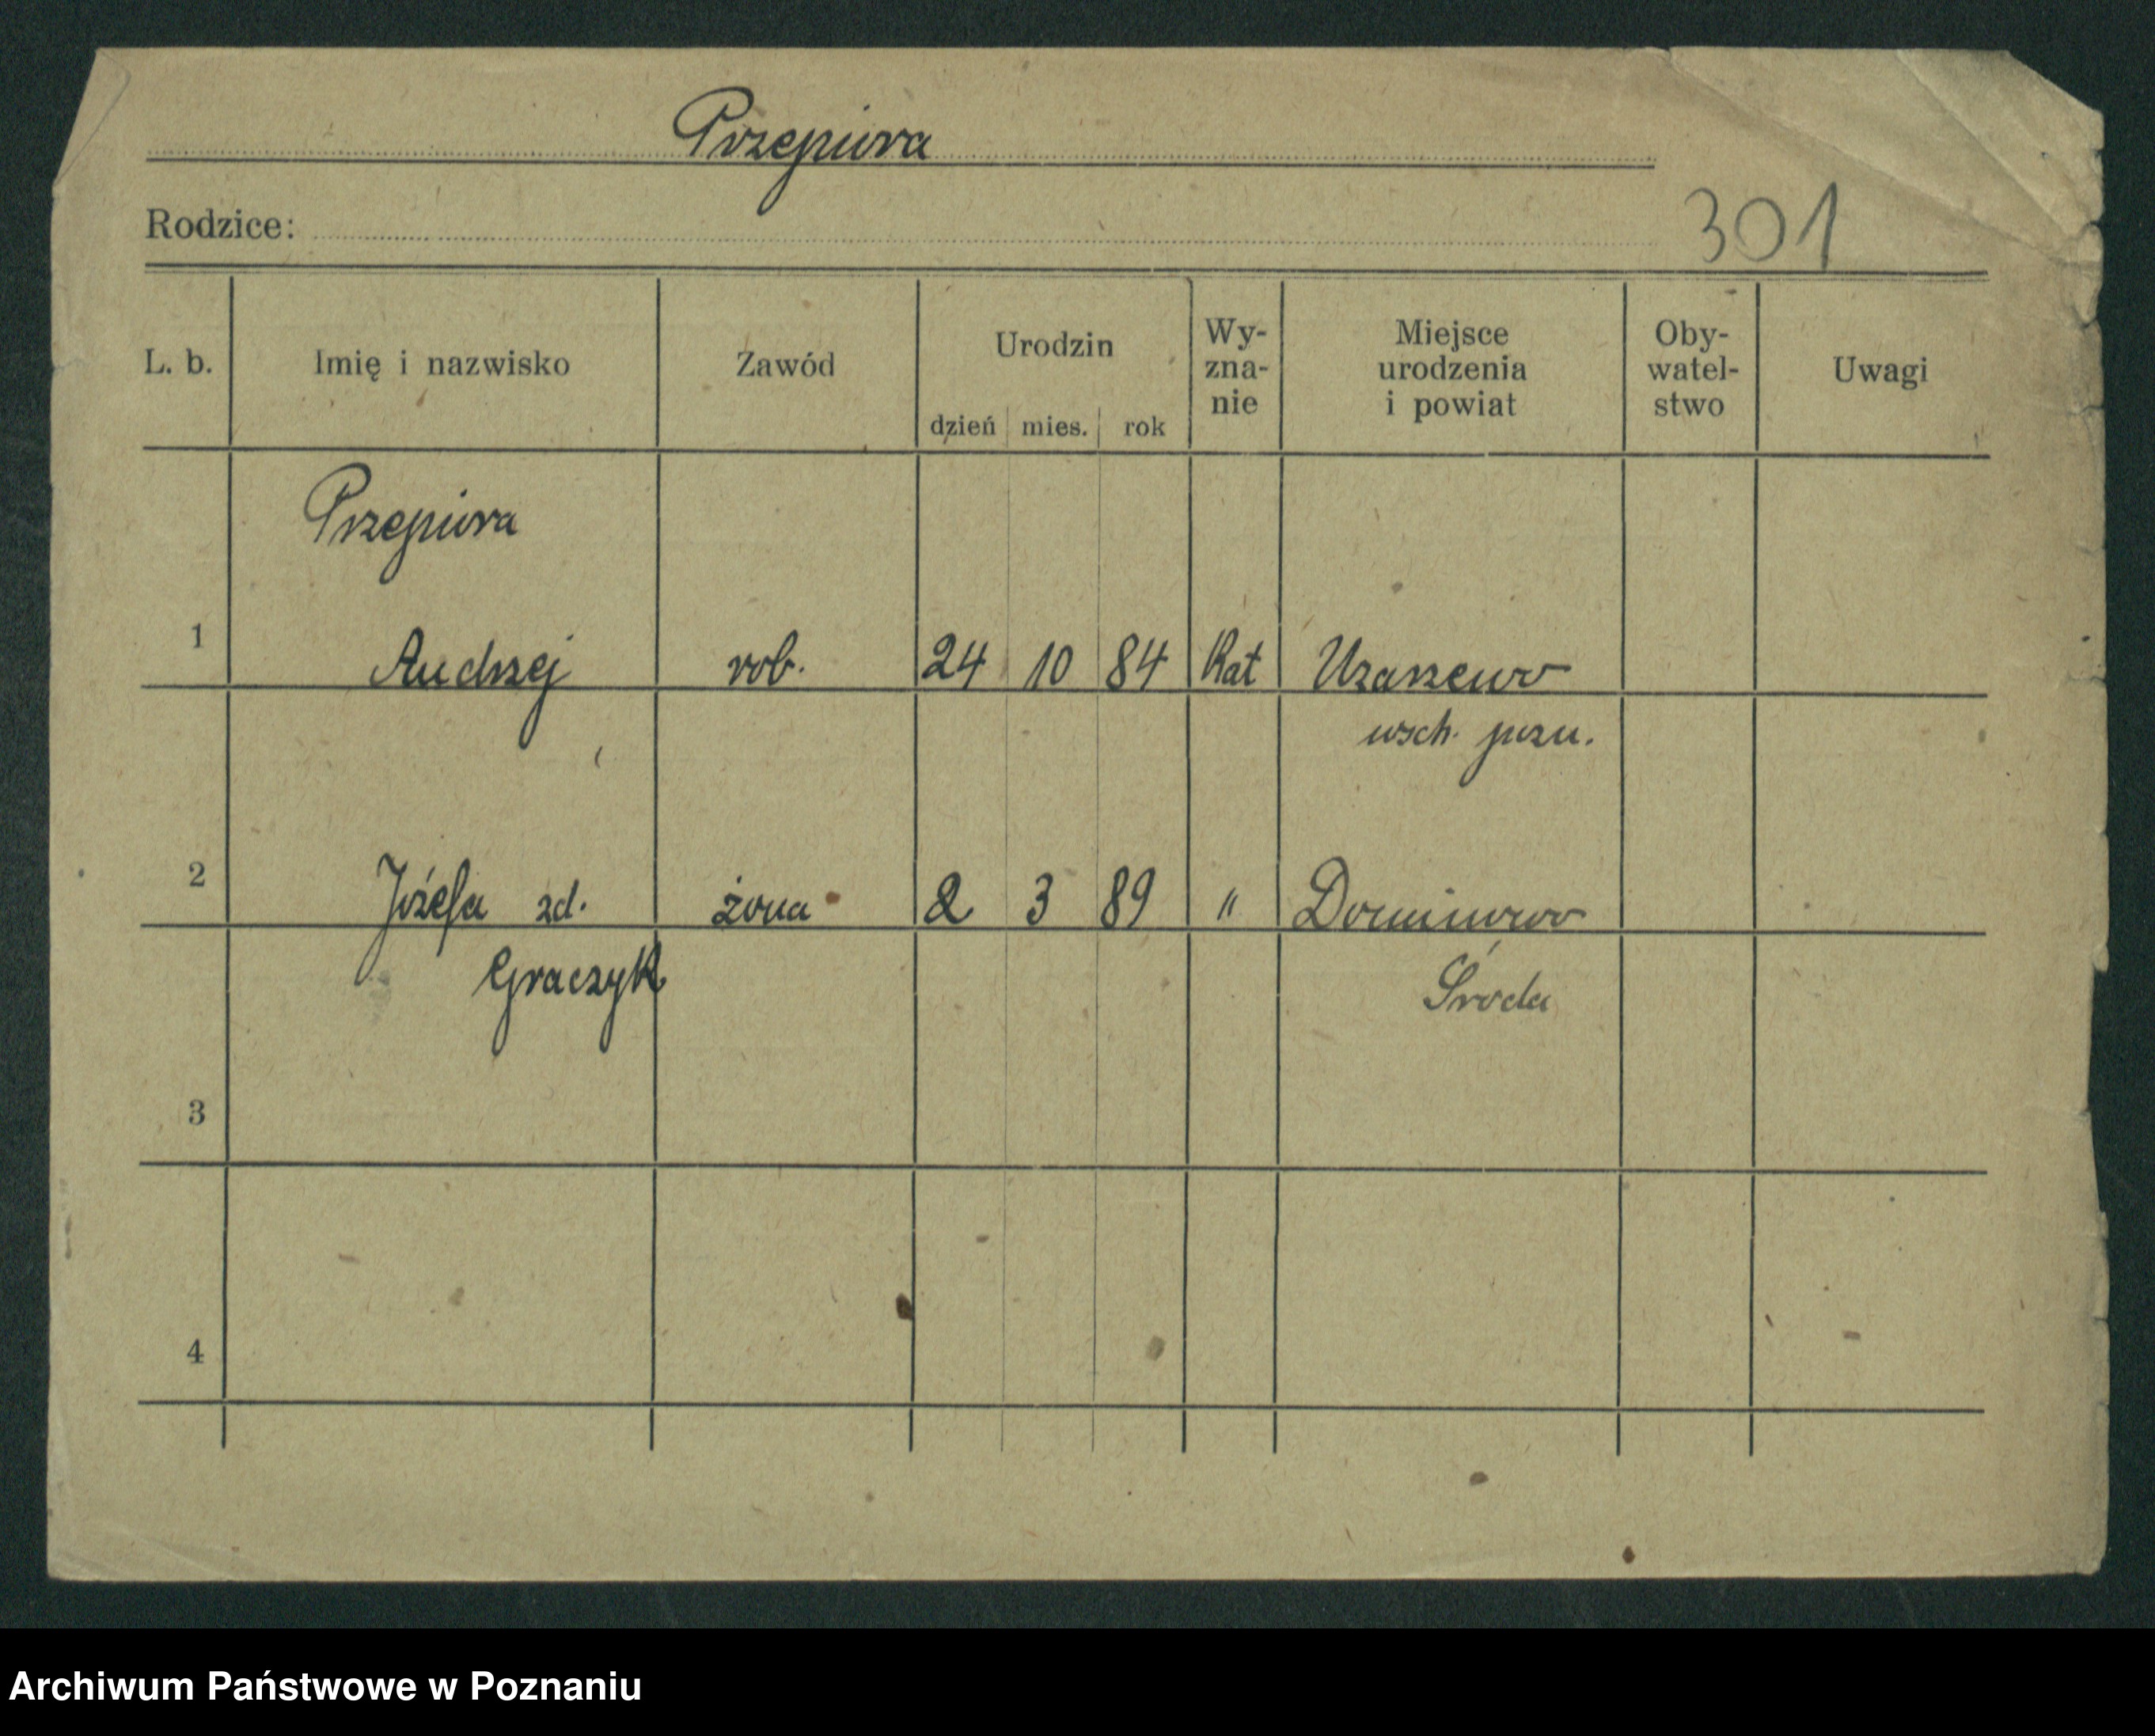 Przepiora
Rodzice:
301
L. b. Imię i nazwisko Zawód Urodzin dzień mies. rok Wy-zna-nie Miejsce urodzenia i powiat Oby-watel-stwo Uwagi
Przepiora
1 Andrzej rob. 24 10 84 Kat Uzarzewo
wsch. pozn.
2 Józefa zd. żona 2 3 89 " Dominowo
Graczyk Środa
3
4
Archiwum Państwowe w Poznaniu